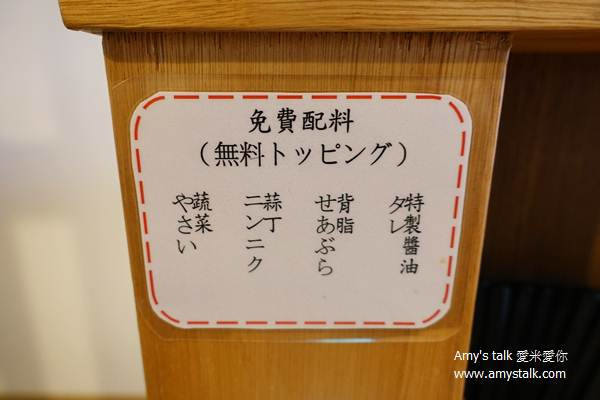 免費配料
（無料トッピング）
特製醬油
タレ
背脂
せあぶら
蒜丁
ニンニク
蔬菜
やさい
Amy's talk 愛米愛你
www.amystalk.com